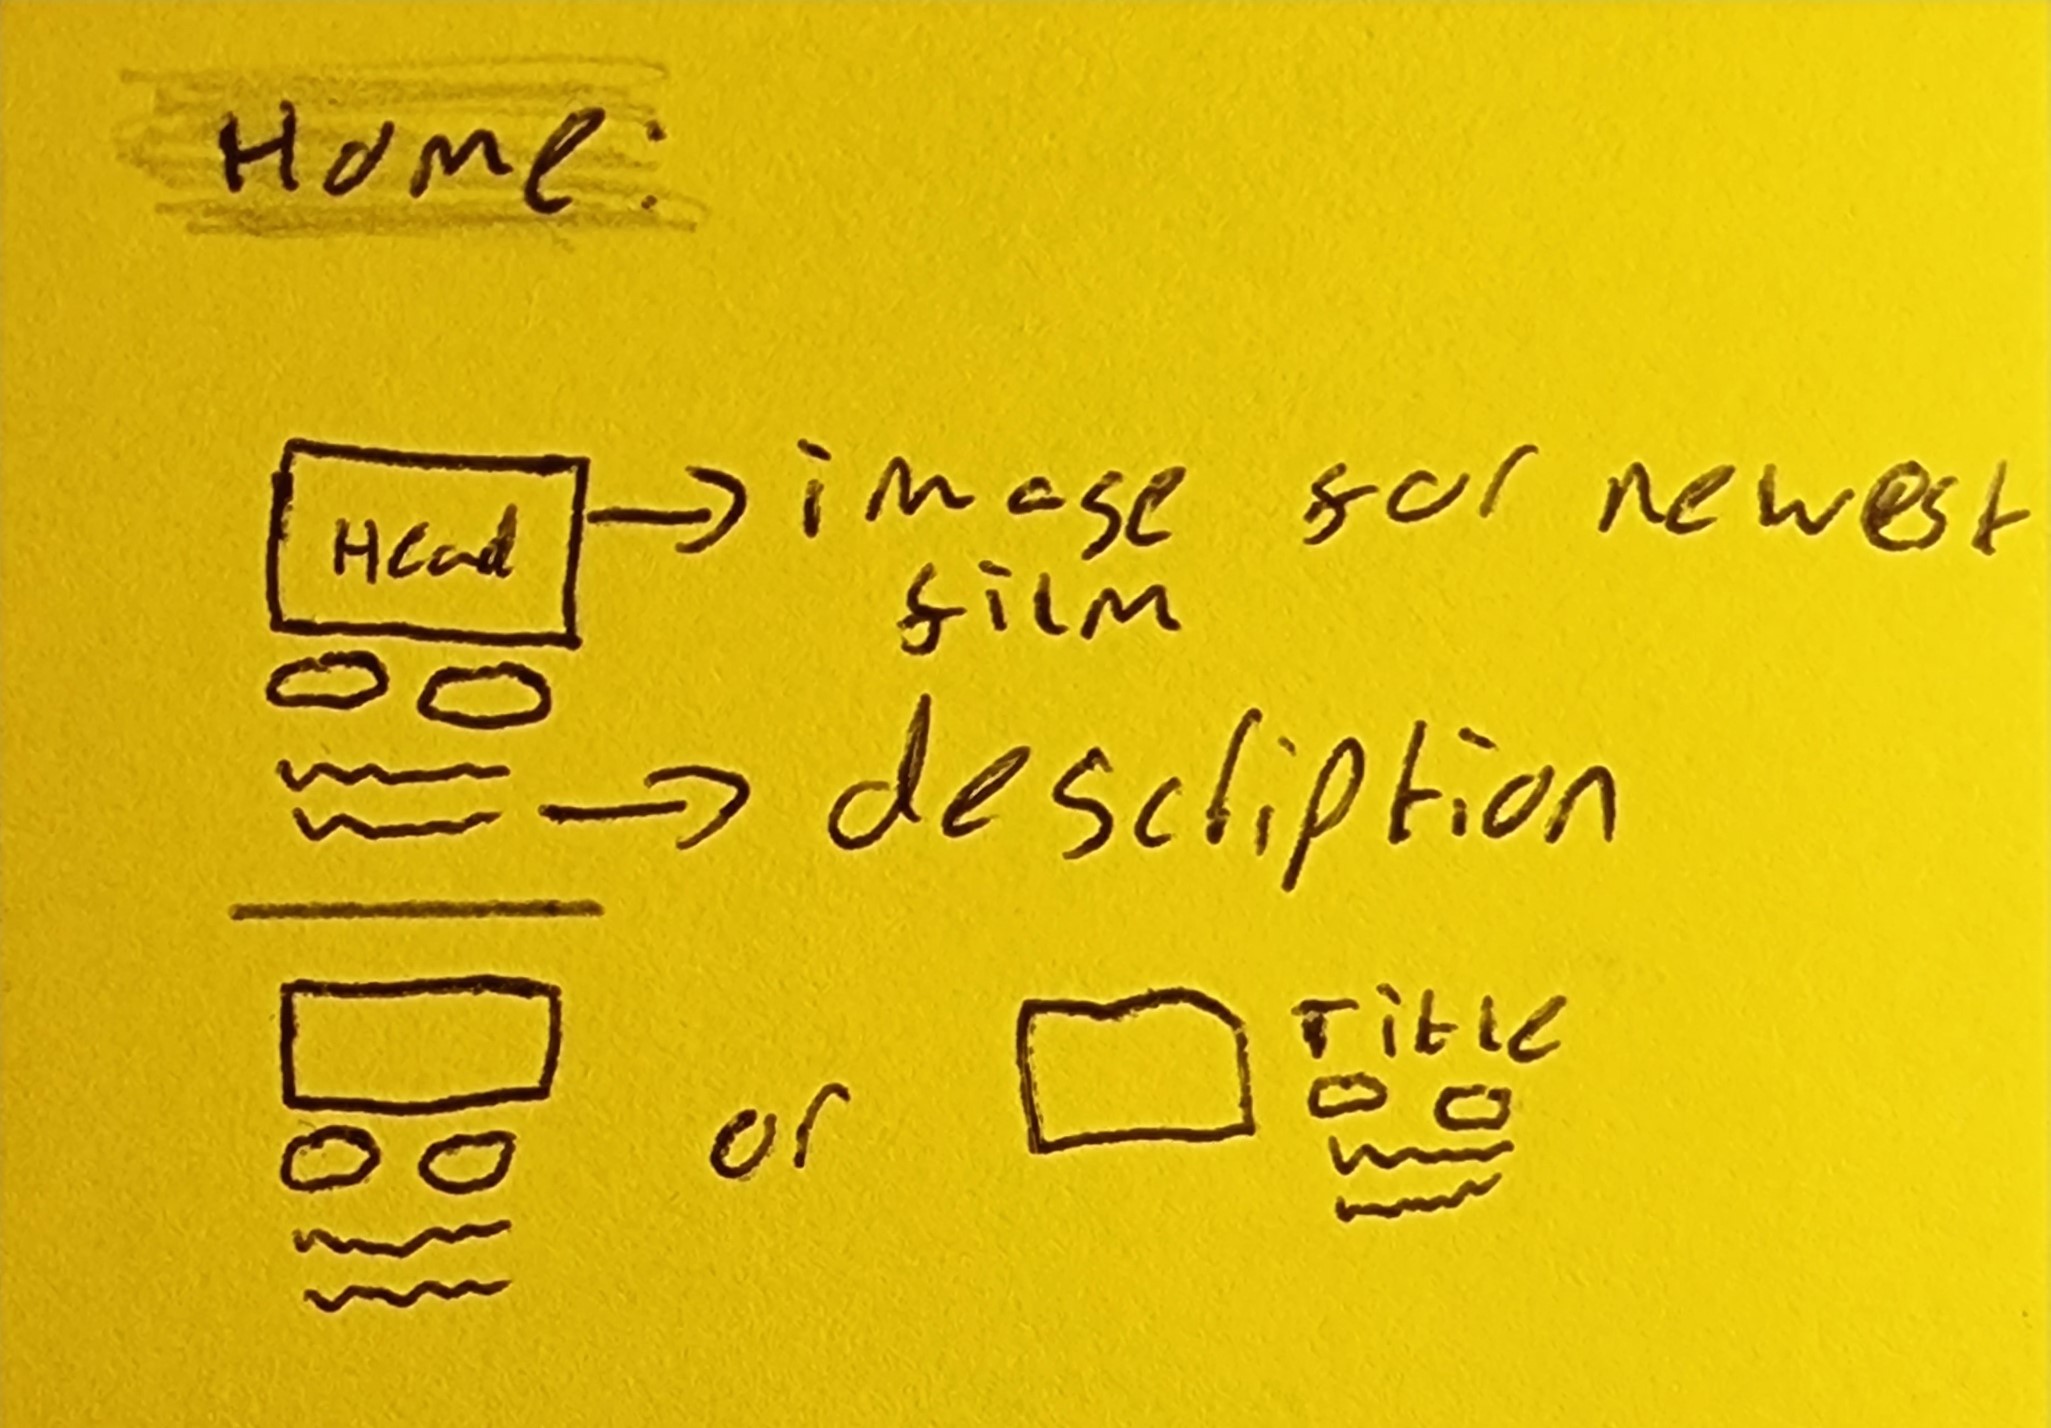 Home:
Head
image for newest
film
description
or
Title